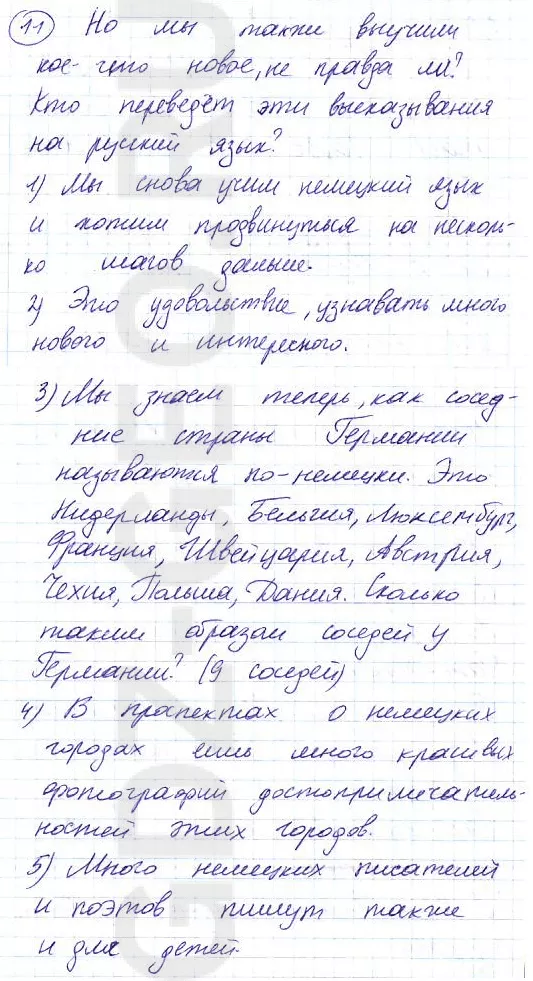 11 Но мы также выучили
кое-что новое, не правда ли?
Кто переведёт эти высказывания
на русский язык?
1) Мы снова учим немецкий язык
и хотим продвинуться на несколь-
ко шагов дальше.
2) Это удовольствие, узнавать много
нового и интересного.
3) Мы знаем теперь, как сосед-
ние страны Германии
называются по-немецки. Это
Нидерланды, Бельгия, Люксембург,
Франция, Швейцария, Австрия,
Чехия, Польша, Дания. Сколько
таким образом соседей у
Германии? (9 соседей)
4) В прапектах о немецких
городах есть много красивых
фотографий достопримечатель-
ностей этих городов.
5) Много немецких писателей
и поэтов пишут также
и для детей.
GDZ-GEO.RU